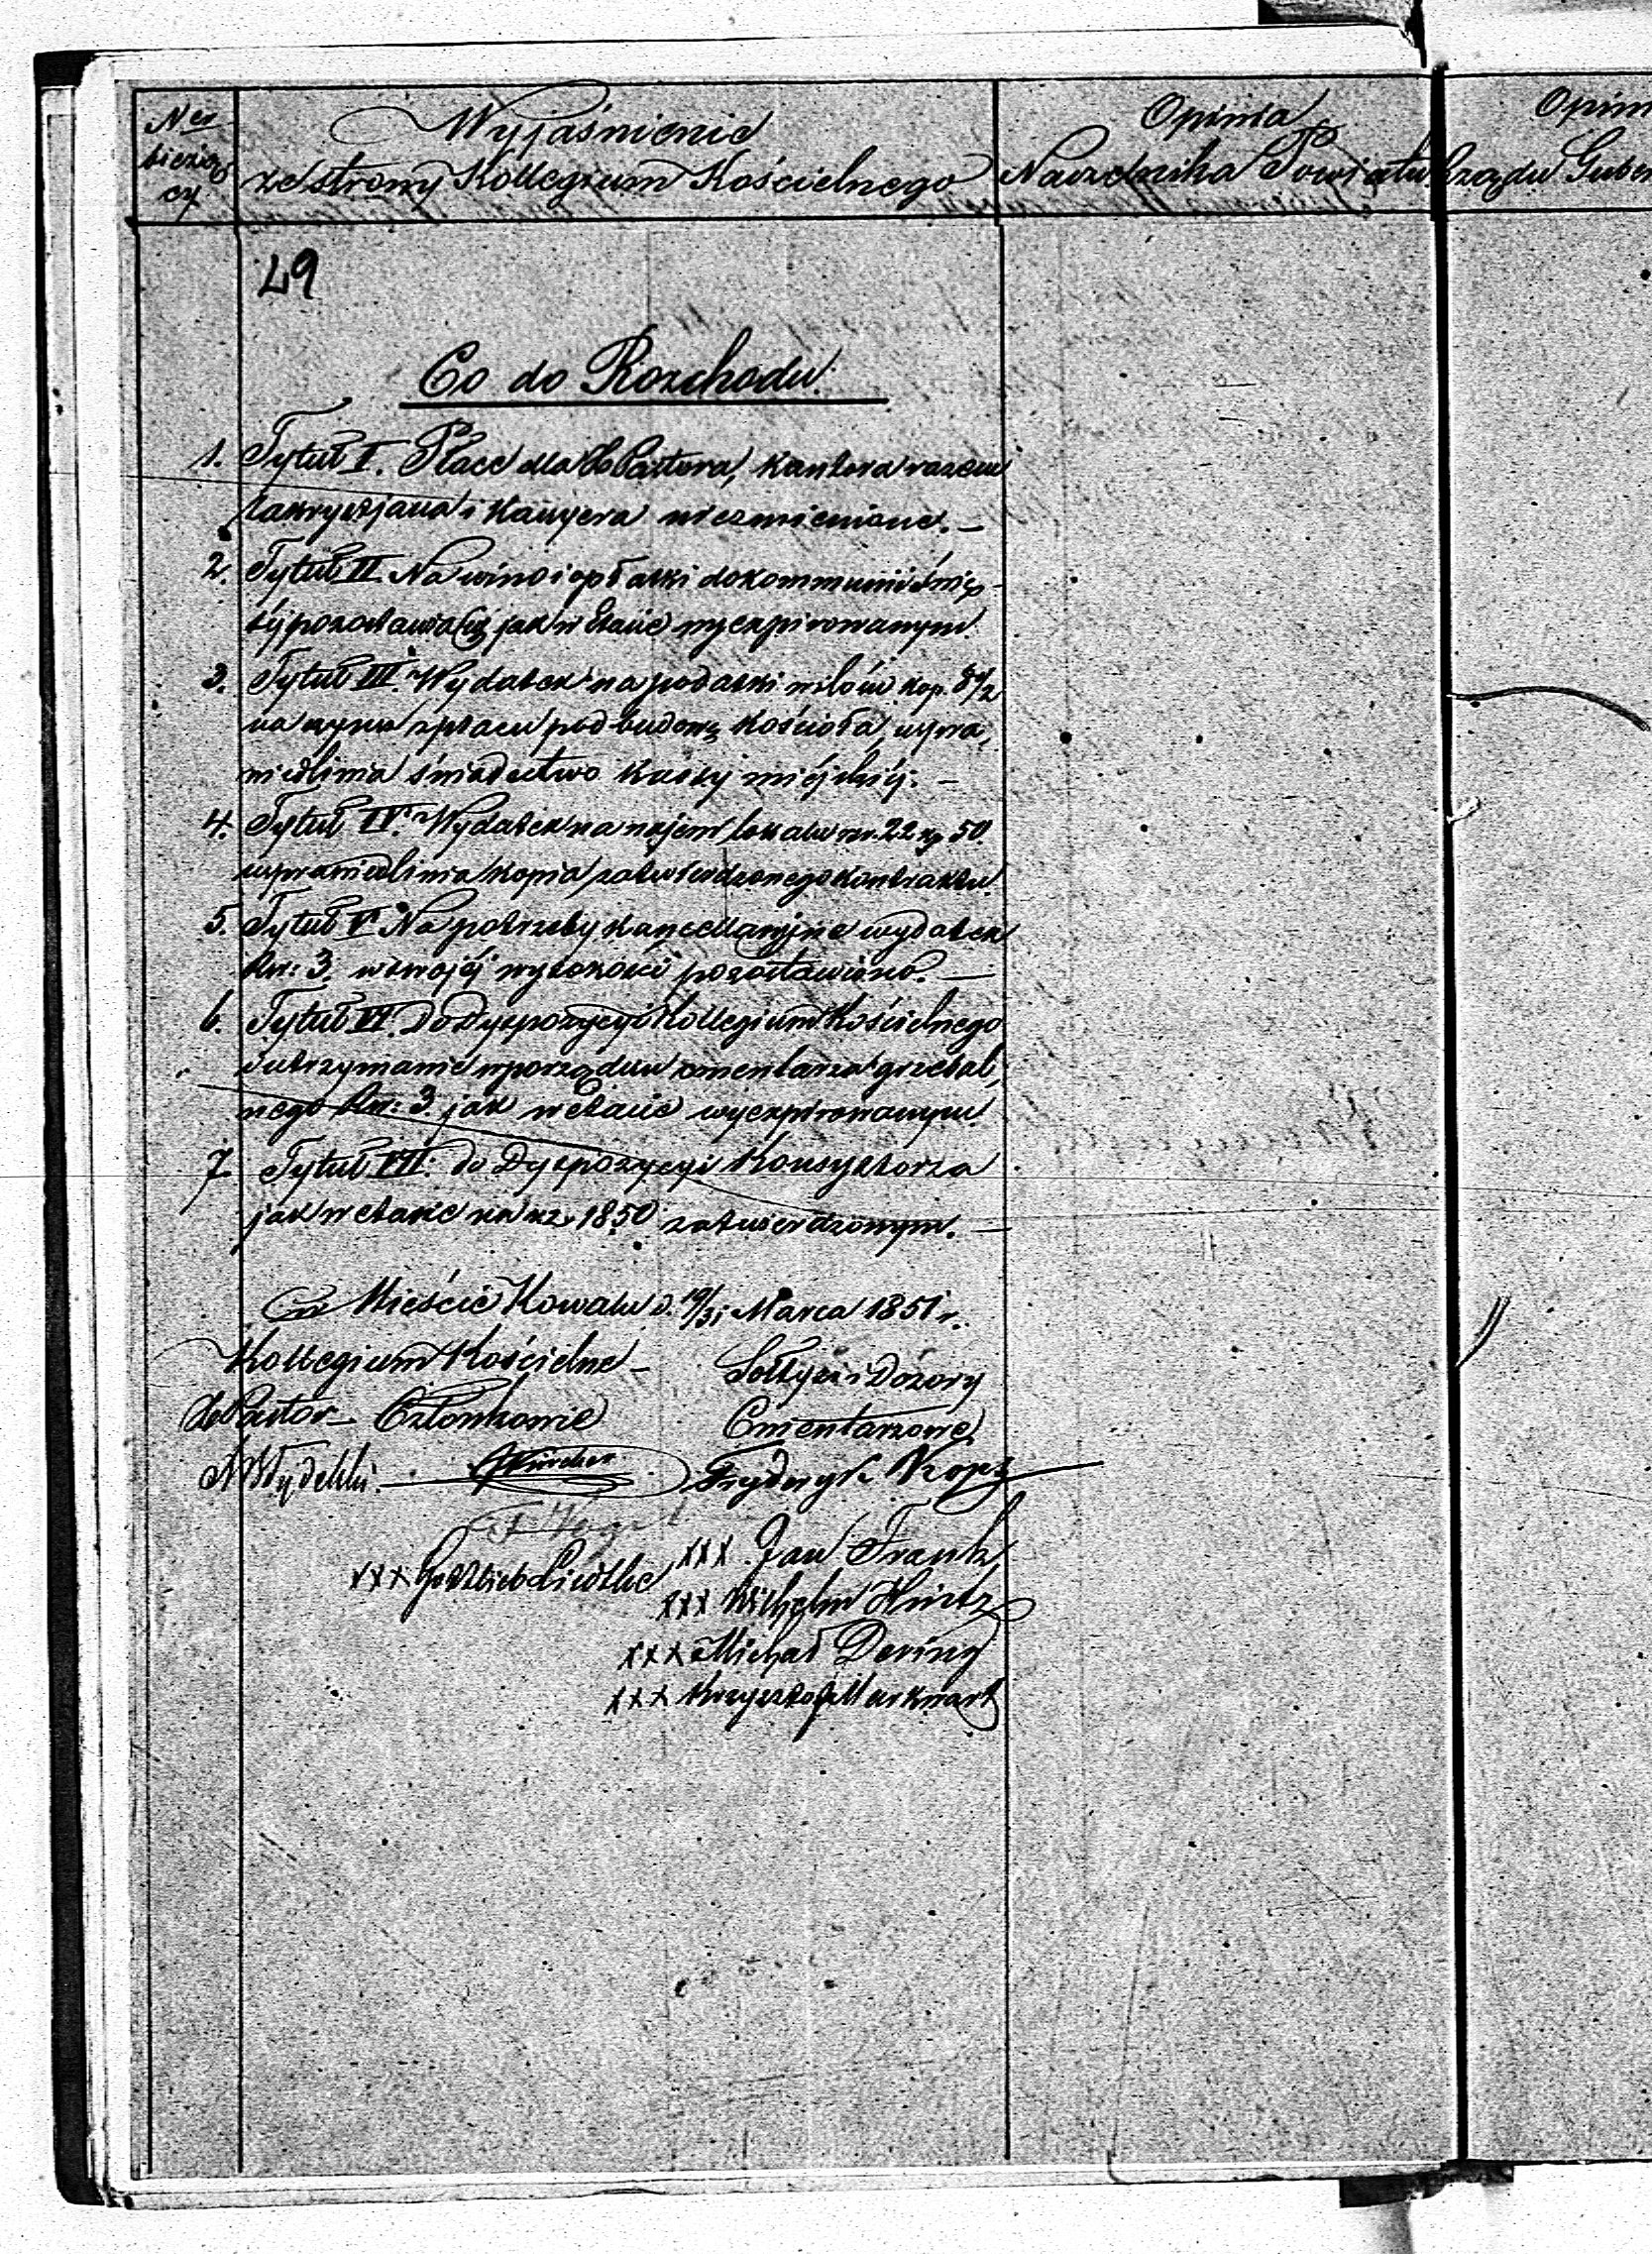 Ner
bieżą
cy
Wyjaśnienie
ze strony Kollegium Kościelnego
Opinia
Naczelnika Powiatu
Opin
Rządu Guber
49
Co do Rozchodu.
1. Tytuł I. Płace dla Pastora, Kantora razem
Zakrystjana i Kassyera niezmienione. —
2. Tytuł II Na wino i opłatki do kommunii świę-
téj pozostawia się jak w Etacie wyexpirowanym.
3. Tytuł III. Wydatek na podatki kop. 8 1/2
na czynsz z placu pod budowę Kościoła, uspra,
wiedlinia świadectwo Kassy miéjskiéj. —
4. Tytuł IV. Wydatek na najem lokalu rsr. 22 k. 50.
usprawiedlinia kopia zatwierdzonego kontraktu.
5. Tytuł V. Na potrzeby kancellaryjne wydatek
Rsr: 3. w swojéj wysokości pozostawiono. —
6. Tytuł VI. Do Dyspozycyi Kollegium Kościelnego
i utrzymanie w porządku cmentarza grzebal,
nego Rsr: 3. jak w Etacie wyexpirowanym.
7. Tytuł VII. do Dyspozycyi Konsystorza
jak w etacie na rz. 1850 zatwierdzonym. —
w Mieście Kowalu d. 19/31 Marca 1851 r.
Kollegium Kościelne — Sołtysi i Dozory
Pastor — Członkowie Cmentarzowe
Fryderyk Kopz
xxx Jan Frank
xxx Gottlieb Liedtke
xxx Wilhelm Hintz
xxx Michał Dering
xxx Krzysztof Markwart